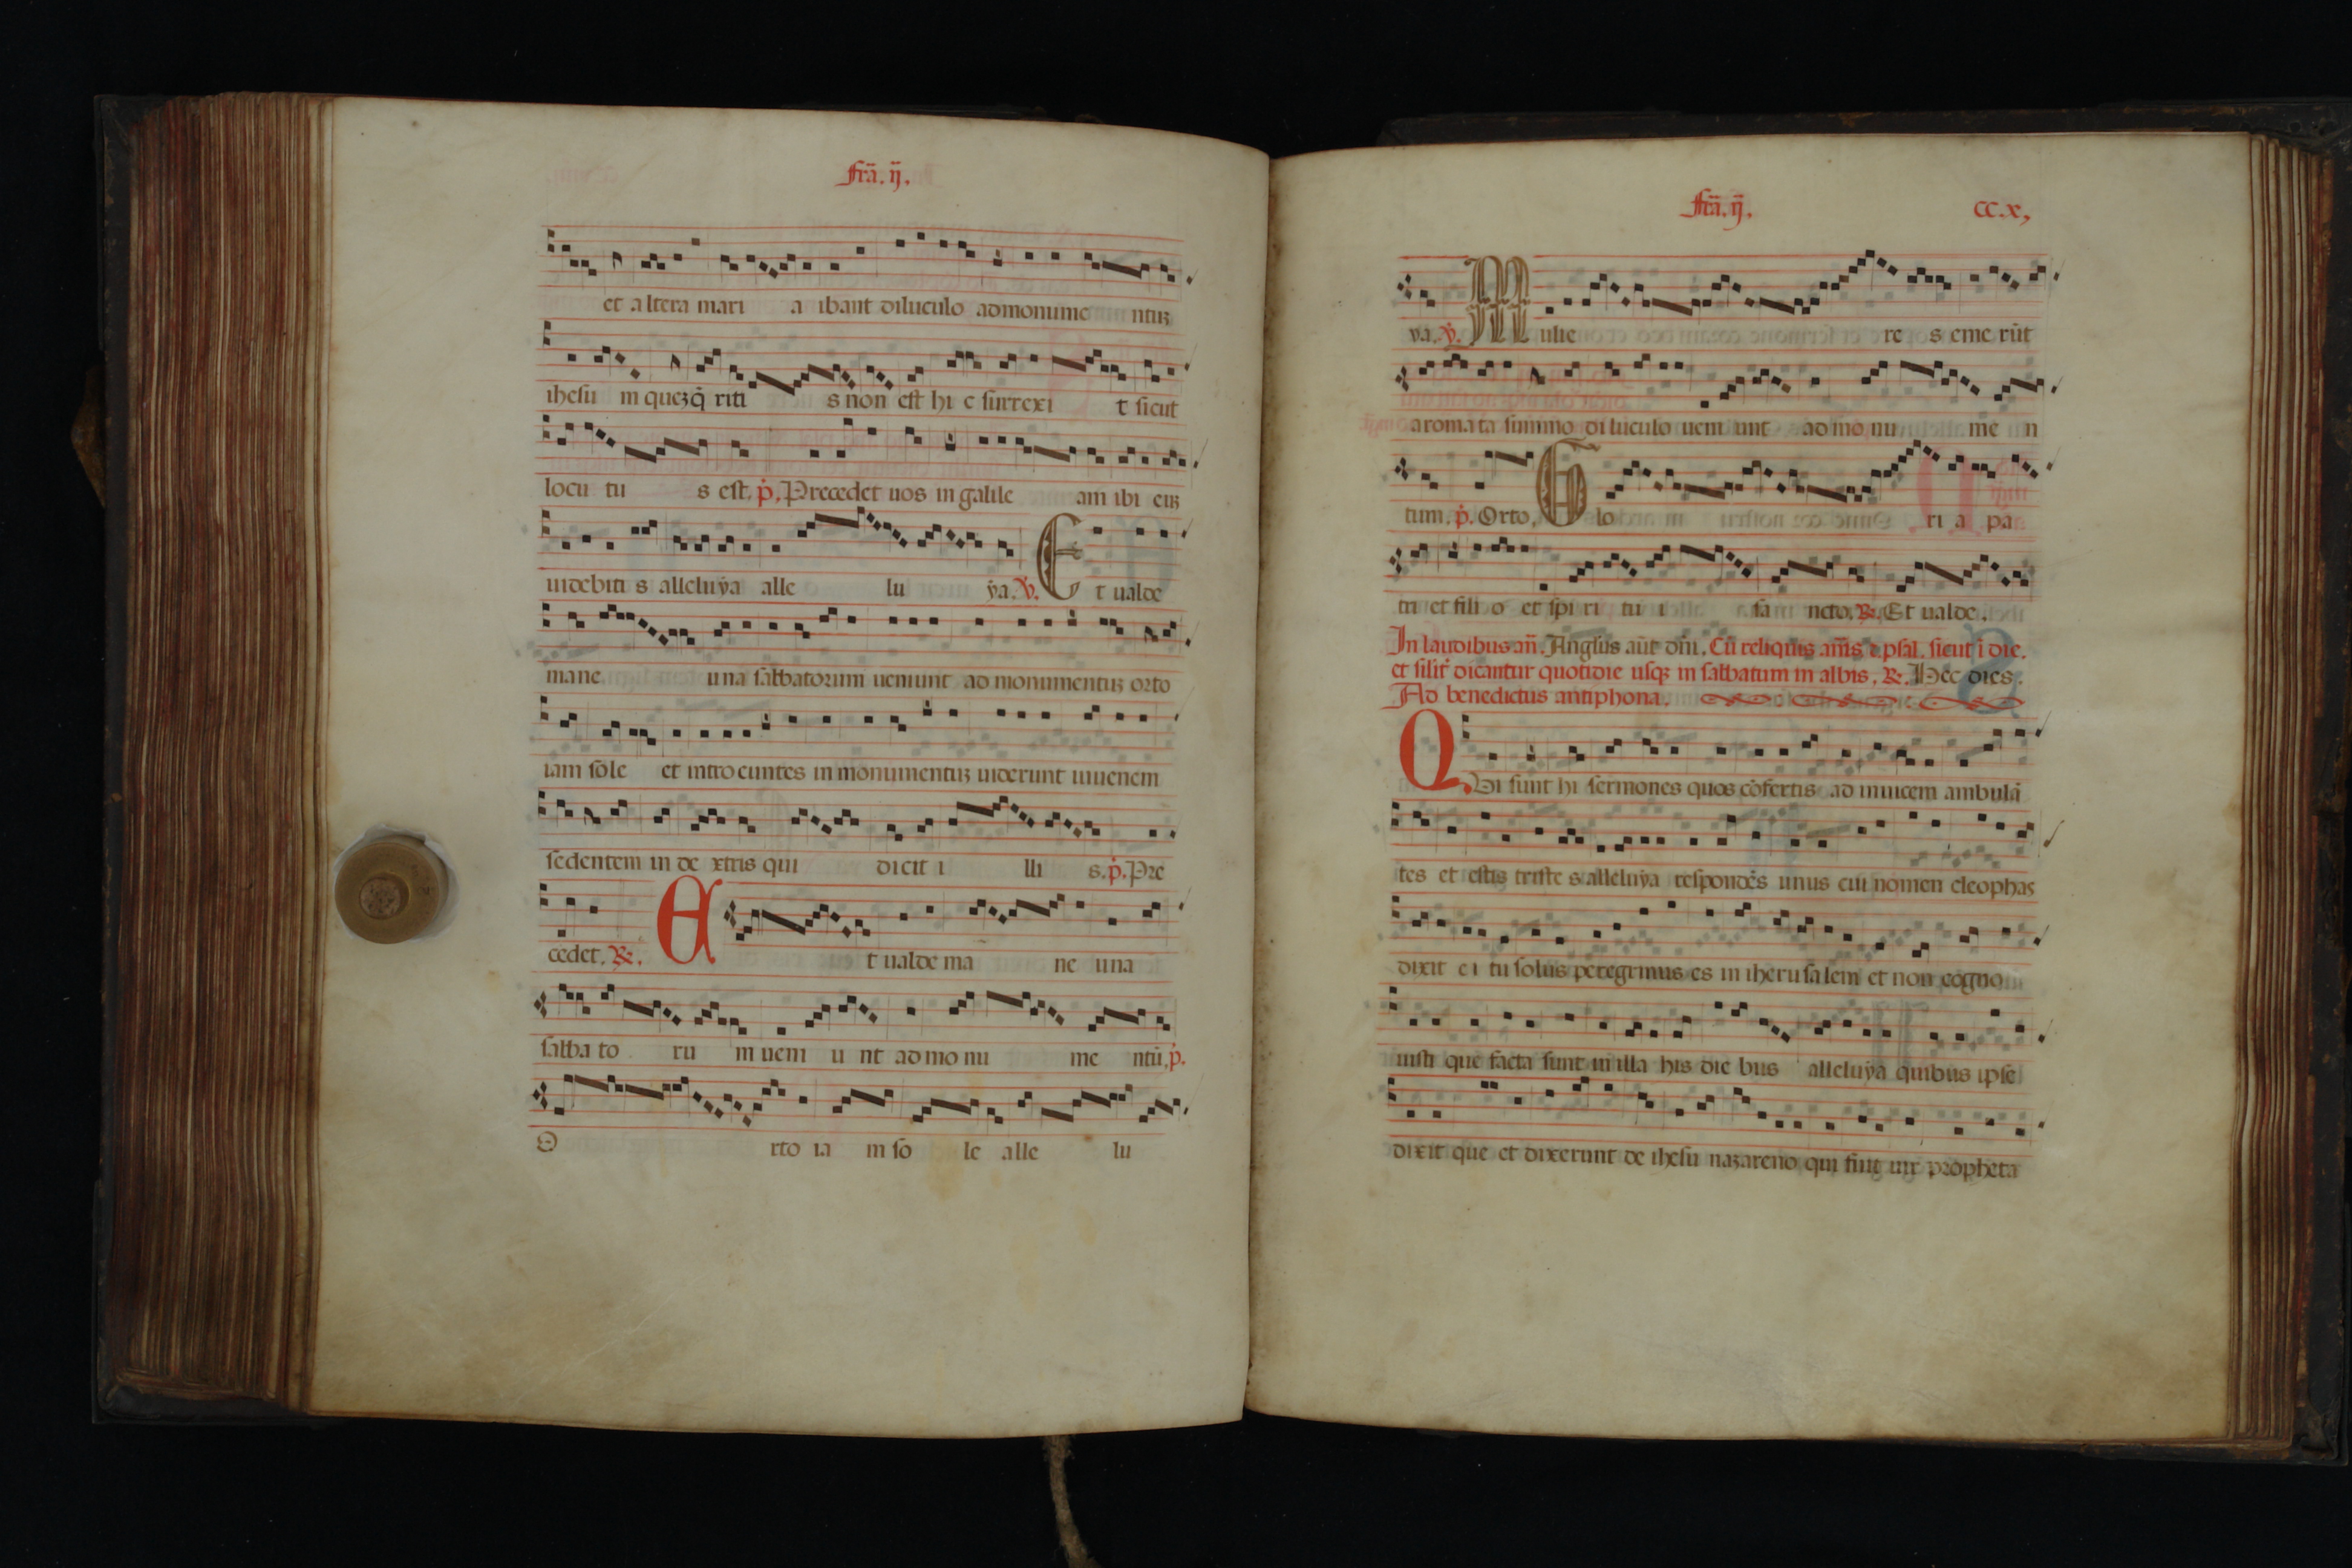 Frã. ij.
et altera mari a ibant diluculo admonume ntuȝ
ihesu m queȝq̃ riti s non est hi c surrexi t sicut
locu tu s est. p̃. Precedet uos in galile am ibi euȝ
uidebiti s alleluẏa alle lu ẏa. ℣. E t ualde
mane una sabbatorum ueniunt ad monumentuȝ orto
iam sole et introeuntes in monumentuȝ uiderunt iuuenem
sedentem in de xtris qui dicit i lli s. p̃. Pre
cedet. ℟. E t ualde ma ne una
sabba to ru m ueni u nt ad mo nu me ntũ. p̃.
O rto ia m so le alle lu
Frã. ij. CC.x,
ya. ℣. M ulie re s eme rũt
aroma ta summo di luculo ueni unt ad mo nu me n
tum. p̃. Orto, G lo ri a pa
tri et fili o et spi ri tu i sa ncto. ℟. Et ualde.
In laudibus añ. Anglus aũt dñi. Cũ reliquis añis ⁊ psal. sicut ĩ die.
et silit̃ dicantur quotidie usqȝ in sabbatum in albis. ℟. Hec dies.
Ad benedictus antiphona.
Qui sunt hi sermones quos cõfertis ad inuicem ambulã
tes et estis triste s alleluẏa respondẽs unus cui nomen cleophas
dixit e i tu solus peregrinus es in iherusalem et non cogno
uisti que facta sunt in illa his die bus alleluẏa quibus ipse
dixit que et dixerunt de ihesu naȝareno qui fuit uir propheta